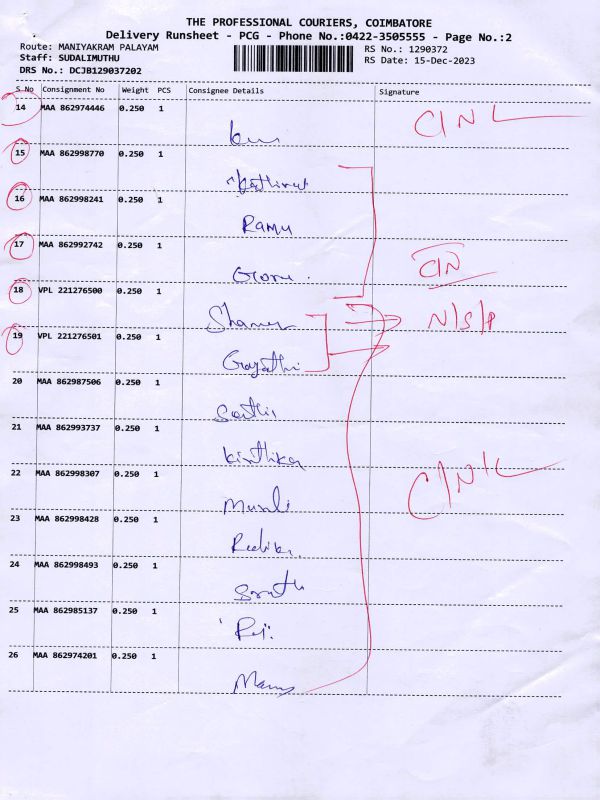 THE PROFESSIONAL COURIERS, COIMBATORE
Delivery Runsheet - PCG - Phone No.:0422-3505555 - Page No.:2
Route: MANIYAKRAM PALAYAM RS No.: 1290372
Staff: SUDALIMUTHU RS Date: 15-Dec-2023
DRS No.: DCJB129037202
S No Consignment No Weight PCS Consignee Details Signature
14 MAA 862974446 0.250 1
C/N L
15 MAA 862998770 0.250 1
Kathirvel
16 MAA 862998241 0.250 1
Ramu
17 MAA 862992742 0.250 1
C/N
18 VPL 221276500 0.250 1
N/S/P
19 VPL 221276501 0.250 1
Gayathri
20 MAA 862987506 0.250 1
21 MAA 862993737 0.250 1
Kirthika
22 MAA 862998307 0.250 1
C/N/L
Murali
23 MAA 862998428 0.250 1
24 MAA 862998493 0.250 1
25 MAA 862985137 0.250 1
26 MAA 862974201 0.250 1